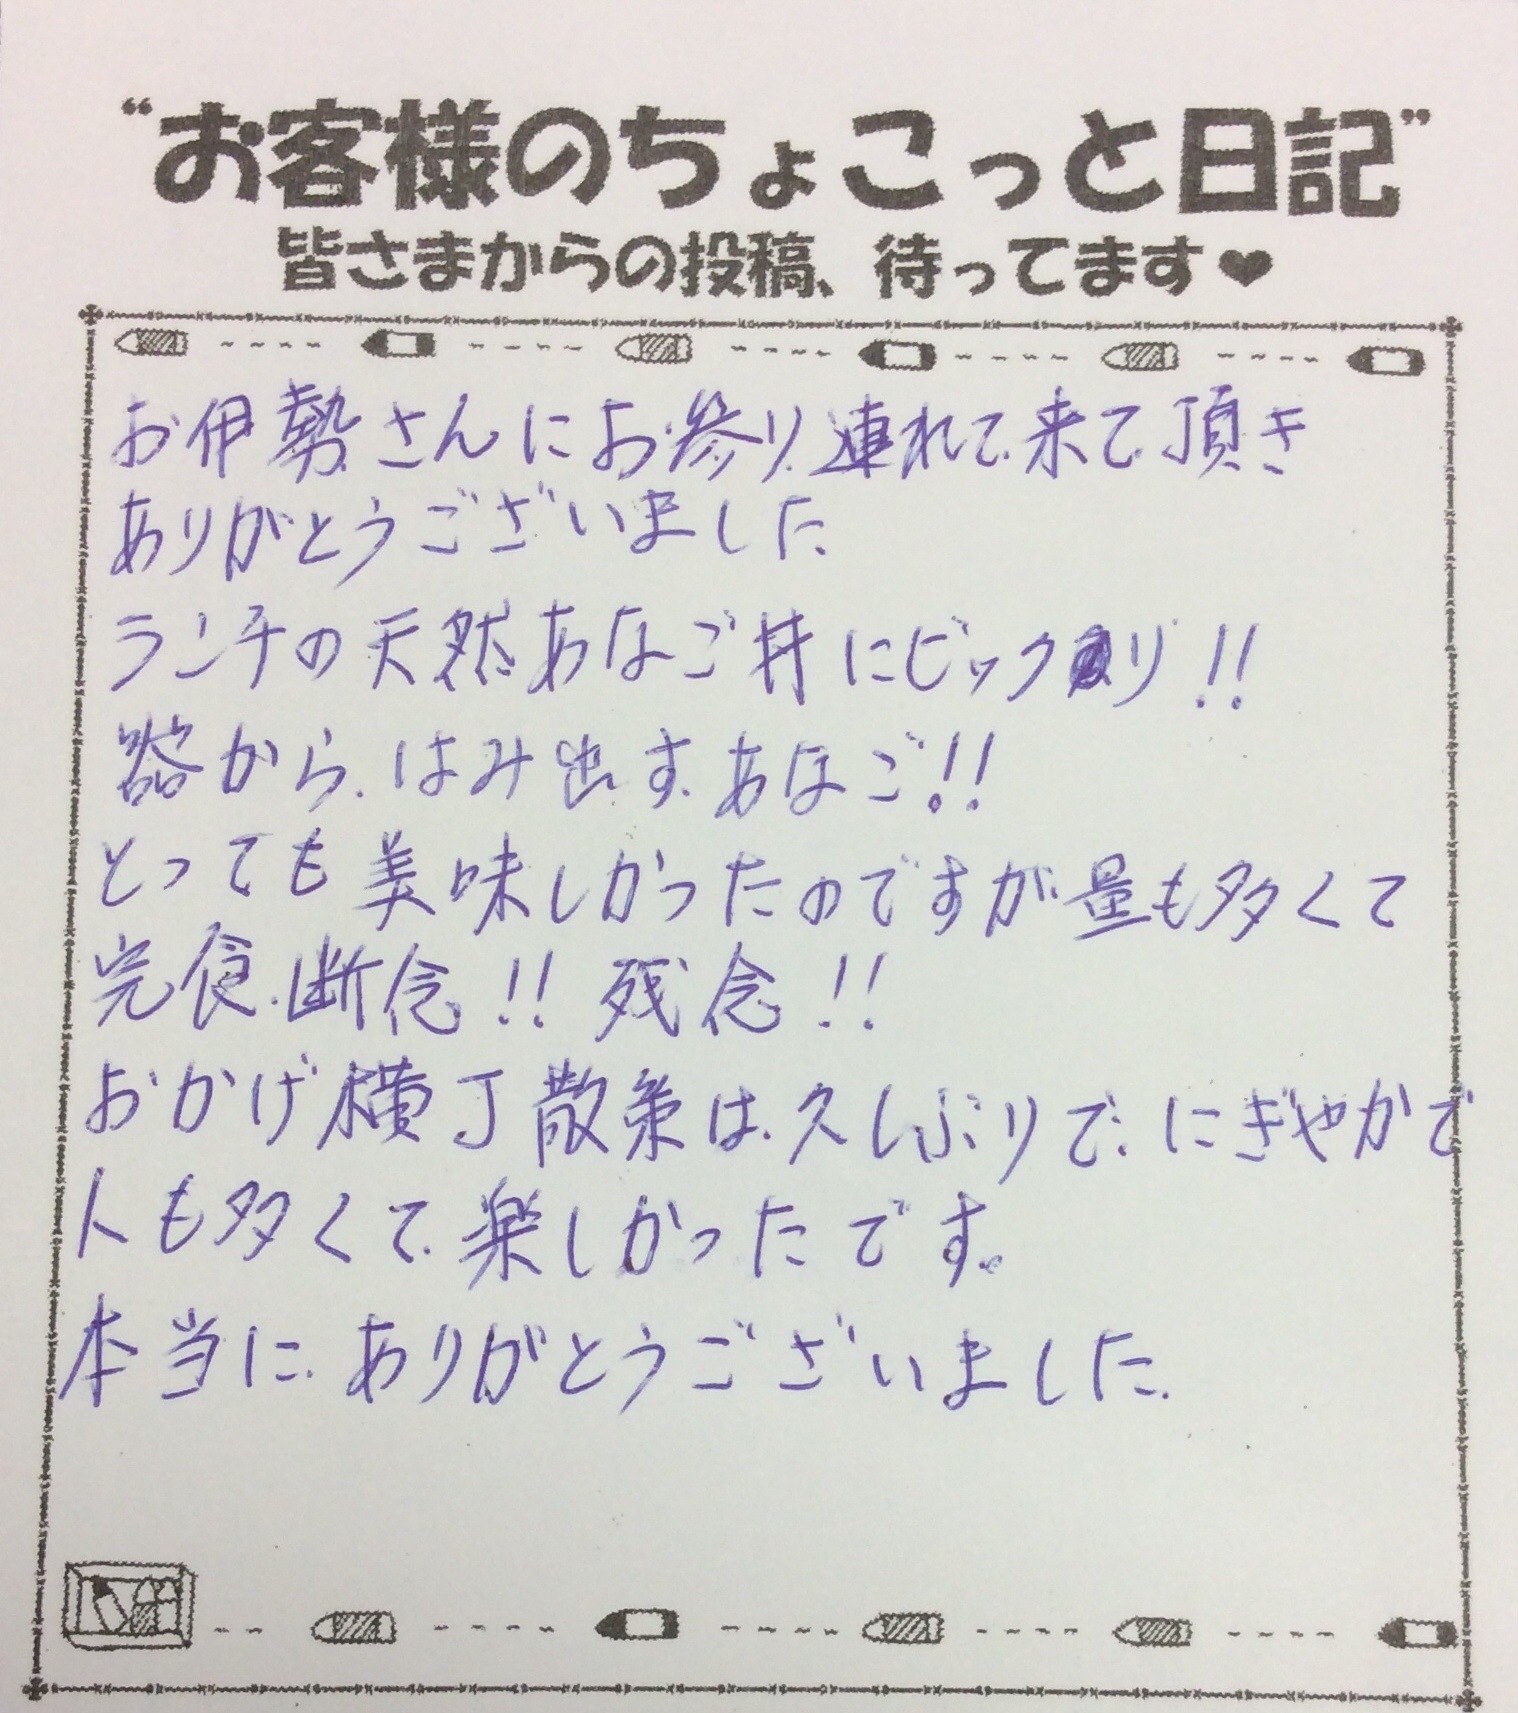 “お客様のちょこっと日記”
皆さまからの投稿、待ってます♥
お伊勢さんにお参り連れて来て頂き
ありがとうございました
ランチの天然あなご丼にビックリ!!
器から、はみ出すあなご!!
とっても美味しかったのですが量も多くて
完食断念!! 残念!!
おかげ横丁散策は、久しぶりで、にぎやかで
人も多くて楽しかったです。
本当に、ありがとうございました。